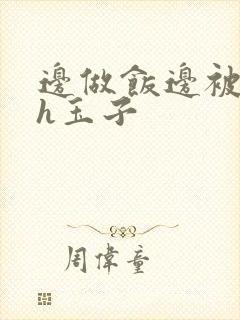 邊做飯邊被
h玉子
周偉童